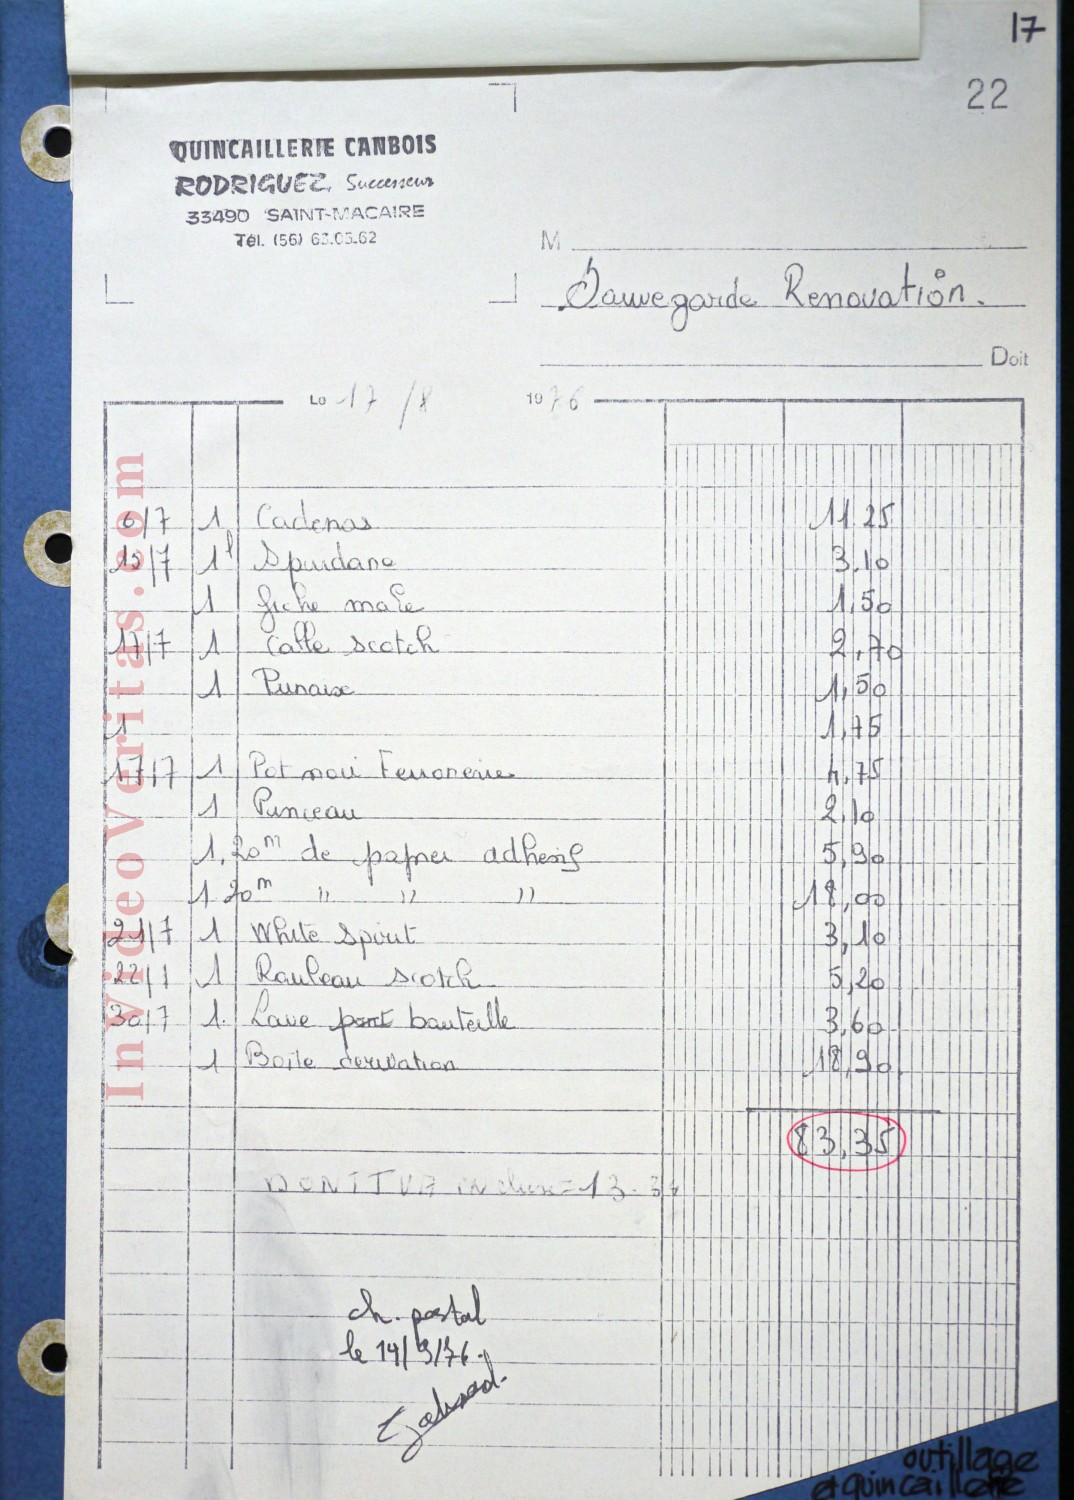 17
22
QUINCAILLERIE CANBOIS
RODRIGUEZ, Successeur
33490 SAINT-MACAIRE
Tél. (56) 63.05.62
M
Sauvegarde Renovation.
Doit
Le 17/8 1976
6/7 1 Cadenas 11.25
15/7 1l 3.10
1 fiche male 1,50
17/7 1 Colle scotch 2,70
1 Punaise 1,50
1 1,75
17/7 1 Pot noir Ferronerie 4,75
1 Pinceau 2,10
1,20m de papier adhesif 5,90
1 20m " " " 18,00
21/7 1 White Spirit 3,10
22/7 1 Rouleau scotch 5,20
30/7 1. Lave pont bouteille 3,60
1 Boîte derivation 18,90
83,35
DONT TVA incluse = 13.34
ch. postal
le 14/9/76.
outillage
et quincaillerie
InVideoVeritas.com